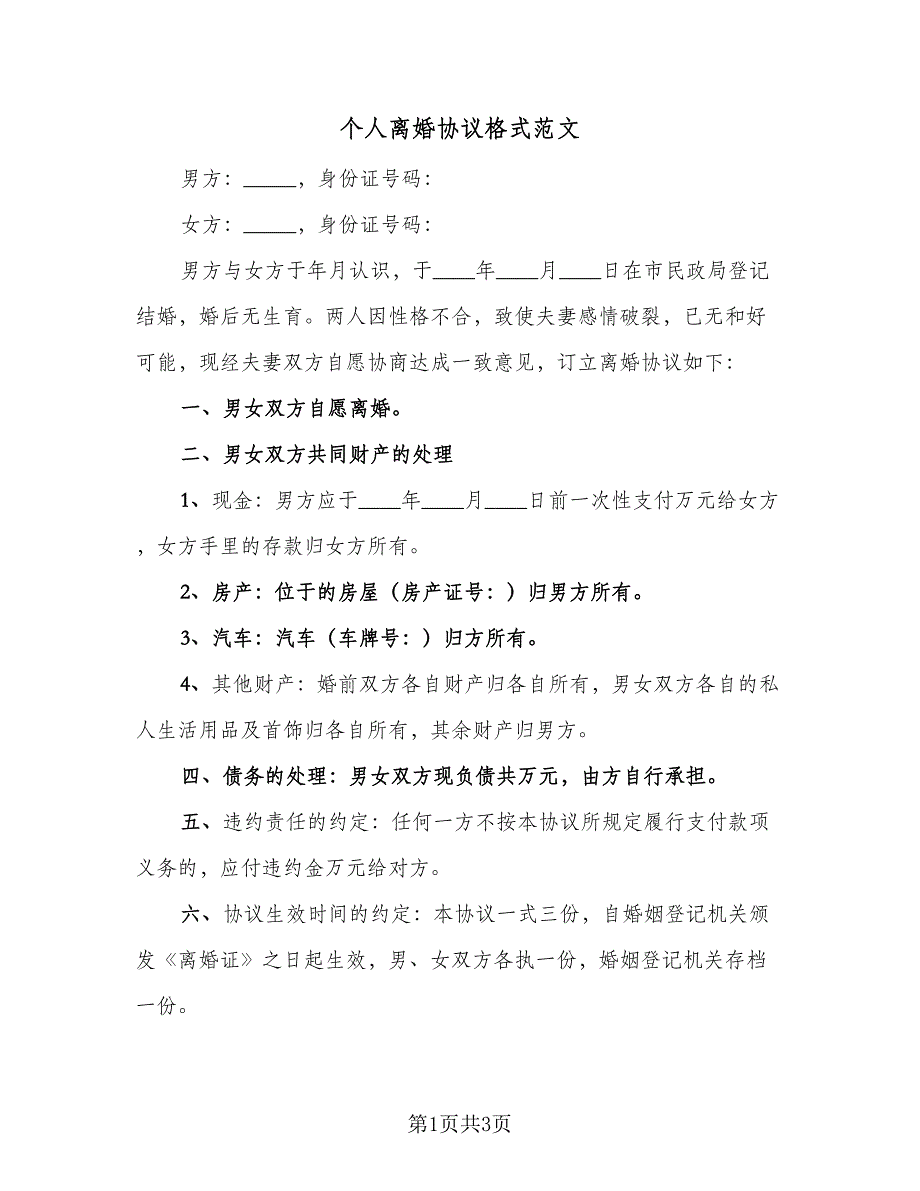 个人离婚协议格式范文
男方：_____，身份证号码：
女方：_____，身份证号码：
男方与女方于年月认识，于____年____月____日在市民政局登记
结婚，婚后无生育。两人因性格不合，致使夫妻感情破裂，已无和好
可能，现经夫妻双方自愿协商达成一致意见，订立离婚协议如下：
一、男女双方自愿离婚。
二、男女双方共同财产的处理
1、现金：男方应于____年____月____日前一次性支付万元给女方
，女方手里的存款归女方所有。
2、房产：位于的房屋（房产证号：）归男方所有。
3、汽车：汽车（车牌号：）归方所有。
4、其他财产：婚前双方各自财产归各自所有，男女双方各自的私
人生活用品及首饰归各自所有，其余财产归男方。
四、债务的处理：男女双方现负债共万元，由方自行承担。
五、违约责任的约定：任何一方不按本协议所规定履行支付款项
义务的，应付违约金万元给对方。
六、协议生效时间的约定：本协议一式三份，自婚姻登记机关颁
发《离婚证》之日起生效，男、女双方各执一份，婚姻登记机关存档
一份。
第1页共3页